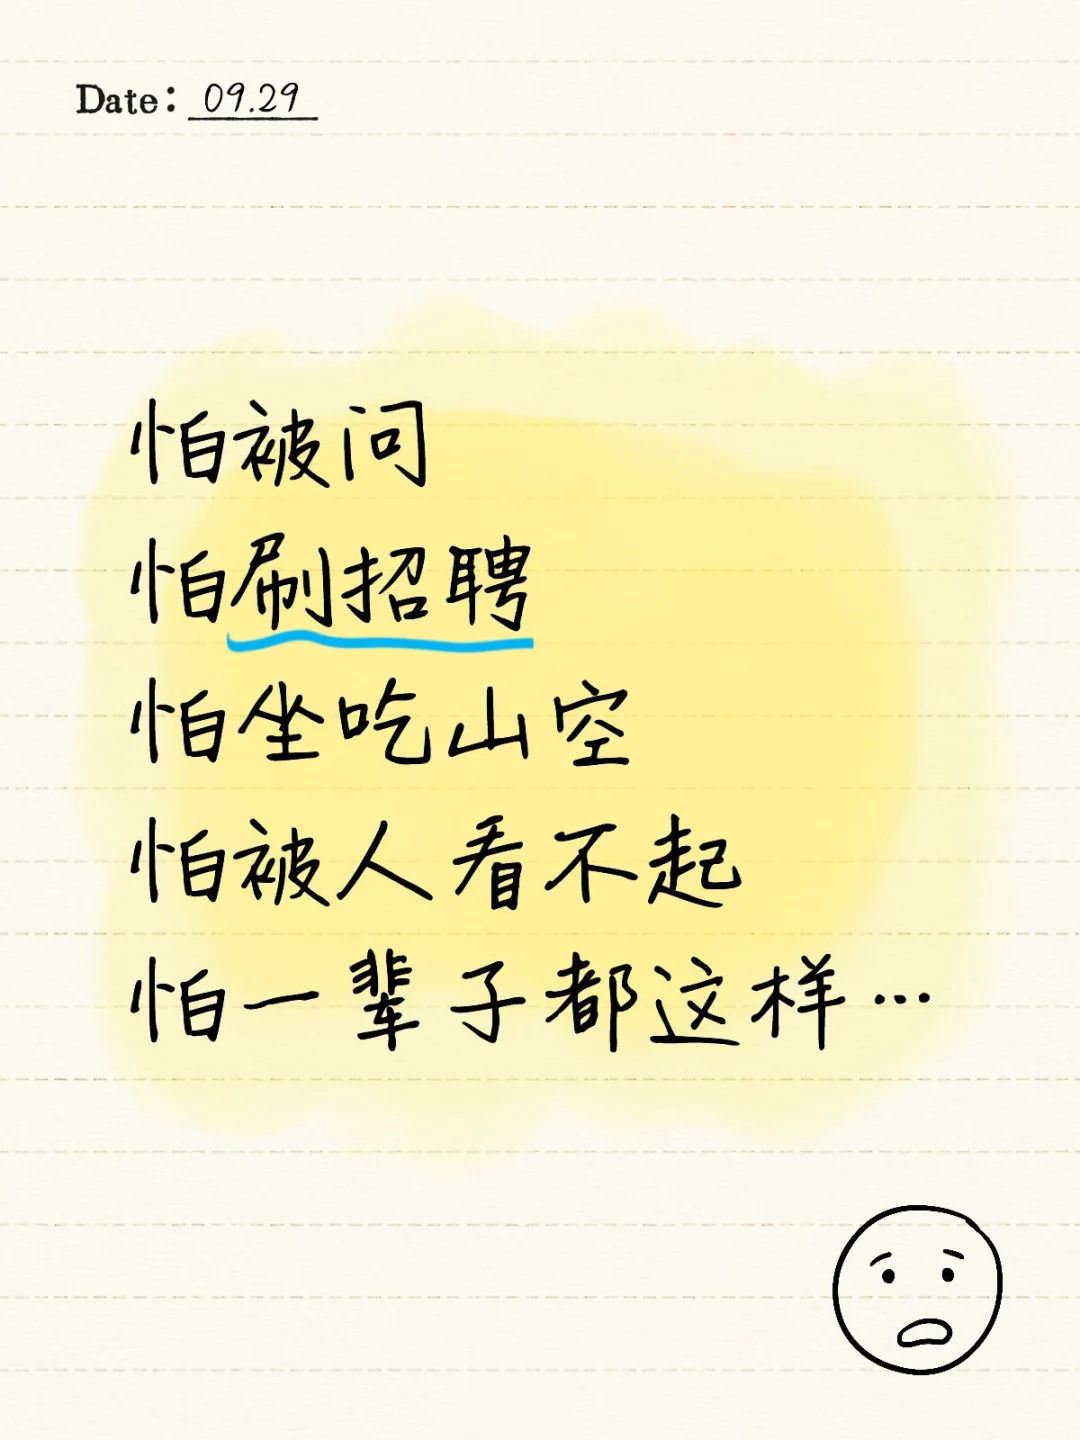 Date: 09.29
怕被问
怕刷招聘
怕坐吃山空
怕被人看不起
怕一辈子都这样…